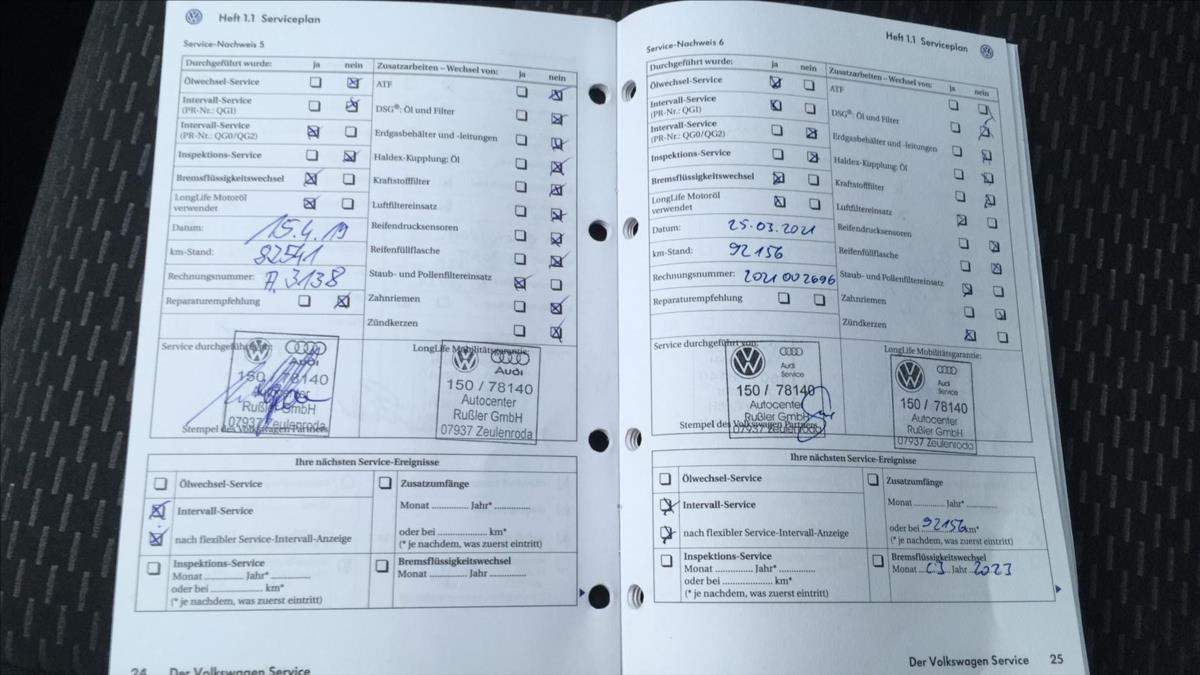 Heft 1.1 Serviceplan
Service-Nachweis 5
Durchgeführt wurde: ja nein Zusatzarbeiten – Wechsel von: ja nein
Ölwechsel-Service
ATF
Intervall-Service
(PR-Nr.: QG1)
DSG®: Öl und Filter
Intervall-Service
(PR-Nr.: QG0/QG2)
Erdgasbehälter und -leitungen
Inspektions-Service
Haldex-Kupplung: Öl
Bremsflüssigkeitswechsel
Kraftstofffilter
LongLife Motoröl
verwendet
Luftfiltereinsatz
Datum: 15.4.19
Reifendrucksensoren
km-Stand: 82541
Reifenfüllflasche
Rechnungsnummer: A.3138
Staub- und Pollenfiltereinsatz
Reparaturempfehlung
Zahnriemen
Zündkerzen
Service durchgeführt
LongLife Mobilitätsgarantie:
Audi
150 / 78140
Rußler GmbH
07937 Zeulenroda
Stempel des Volkswagen Partners
Audi
150 / 78140
Autocenter
Rußler GmbH
07937 Zeulenroda
Ihre nächsten Service-Ereignisse
Ölwechsel-Service
Zusatzumfänge
Intervall-Service
Monat ............. Jahr* .............
nach flexibler Service-Intervall-Anzeige
oder bei .................. km*
(* je nachdem, was zuerst eintritt)
Inspektions-Service
Monat ............. Jahr* .............
oder bei .................. km*
(* je nachdem, was zuerst eintritt)
Bremsflüssigkeitswechsel
Monat ............. Jahr .............
24 Der Volkswagen Service
Heft 1.1 Serviceplan
Service-Nachweis 6
Durchgeführt wurde: ja nein Zusatzarbeiten – Wechsel von: ja nein
Ölwechsel-Service
ATF
Intervall-Service
(PR-Nr.: QG1)
DSG®: Öl und Filter
Intervall-Service
(PR-Nr.: QG0/QG2)
Erdgasbehälter und -leitungen
Inspektions-Service
Haldex-Kupplung: Öl
Bremsflüssigkeitswechsel
Kraftstofffilter
LongLife Motoröl
verwendet
Luftfiltereinsatz
Datum: 25.03.2021
Reifendrucksensoren
km-Stand: 92156
Reifenfüllflasche
Rechnungsnummer: 2021002696
Staub- und Pollenfiltereinsatz
Reparaturempfehlung
Zahnriemen
Zündkerzen
Service durchgeführt von:
LongLife Mobilitätsgarantie:
Audi
Service
150 / 78140
Autocenter
Rußler GmbH
07937 Zeulenroda
Stempel des Volkswagen Partners
Audi
Service
150 / 78140
Autocenter
Rußler GmbH
07937 Zeulenroda
Ihre nächsten Service-Ereignisse
Ölwechsel-Service
Zusatzumfänge
Intervall-Service
Monat ............. Jahr* .............
nach flexibler Service-Intervall-Anzeige
oder bei 92156 km*
(* je nachdem, was zuerst eintritt)
Inspektions-Service
Monat ............. Jahr* .............
oder bei .................. km*
(* je nachdem, was zuerst eintritt)
Bremsflüssigkeitswechsel
Monat 03 Jahr 2023
Der Volkswagen Service 25